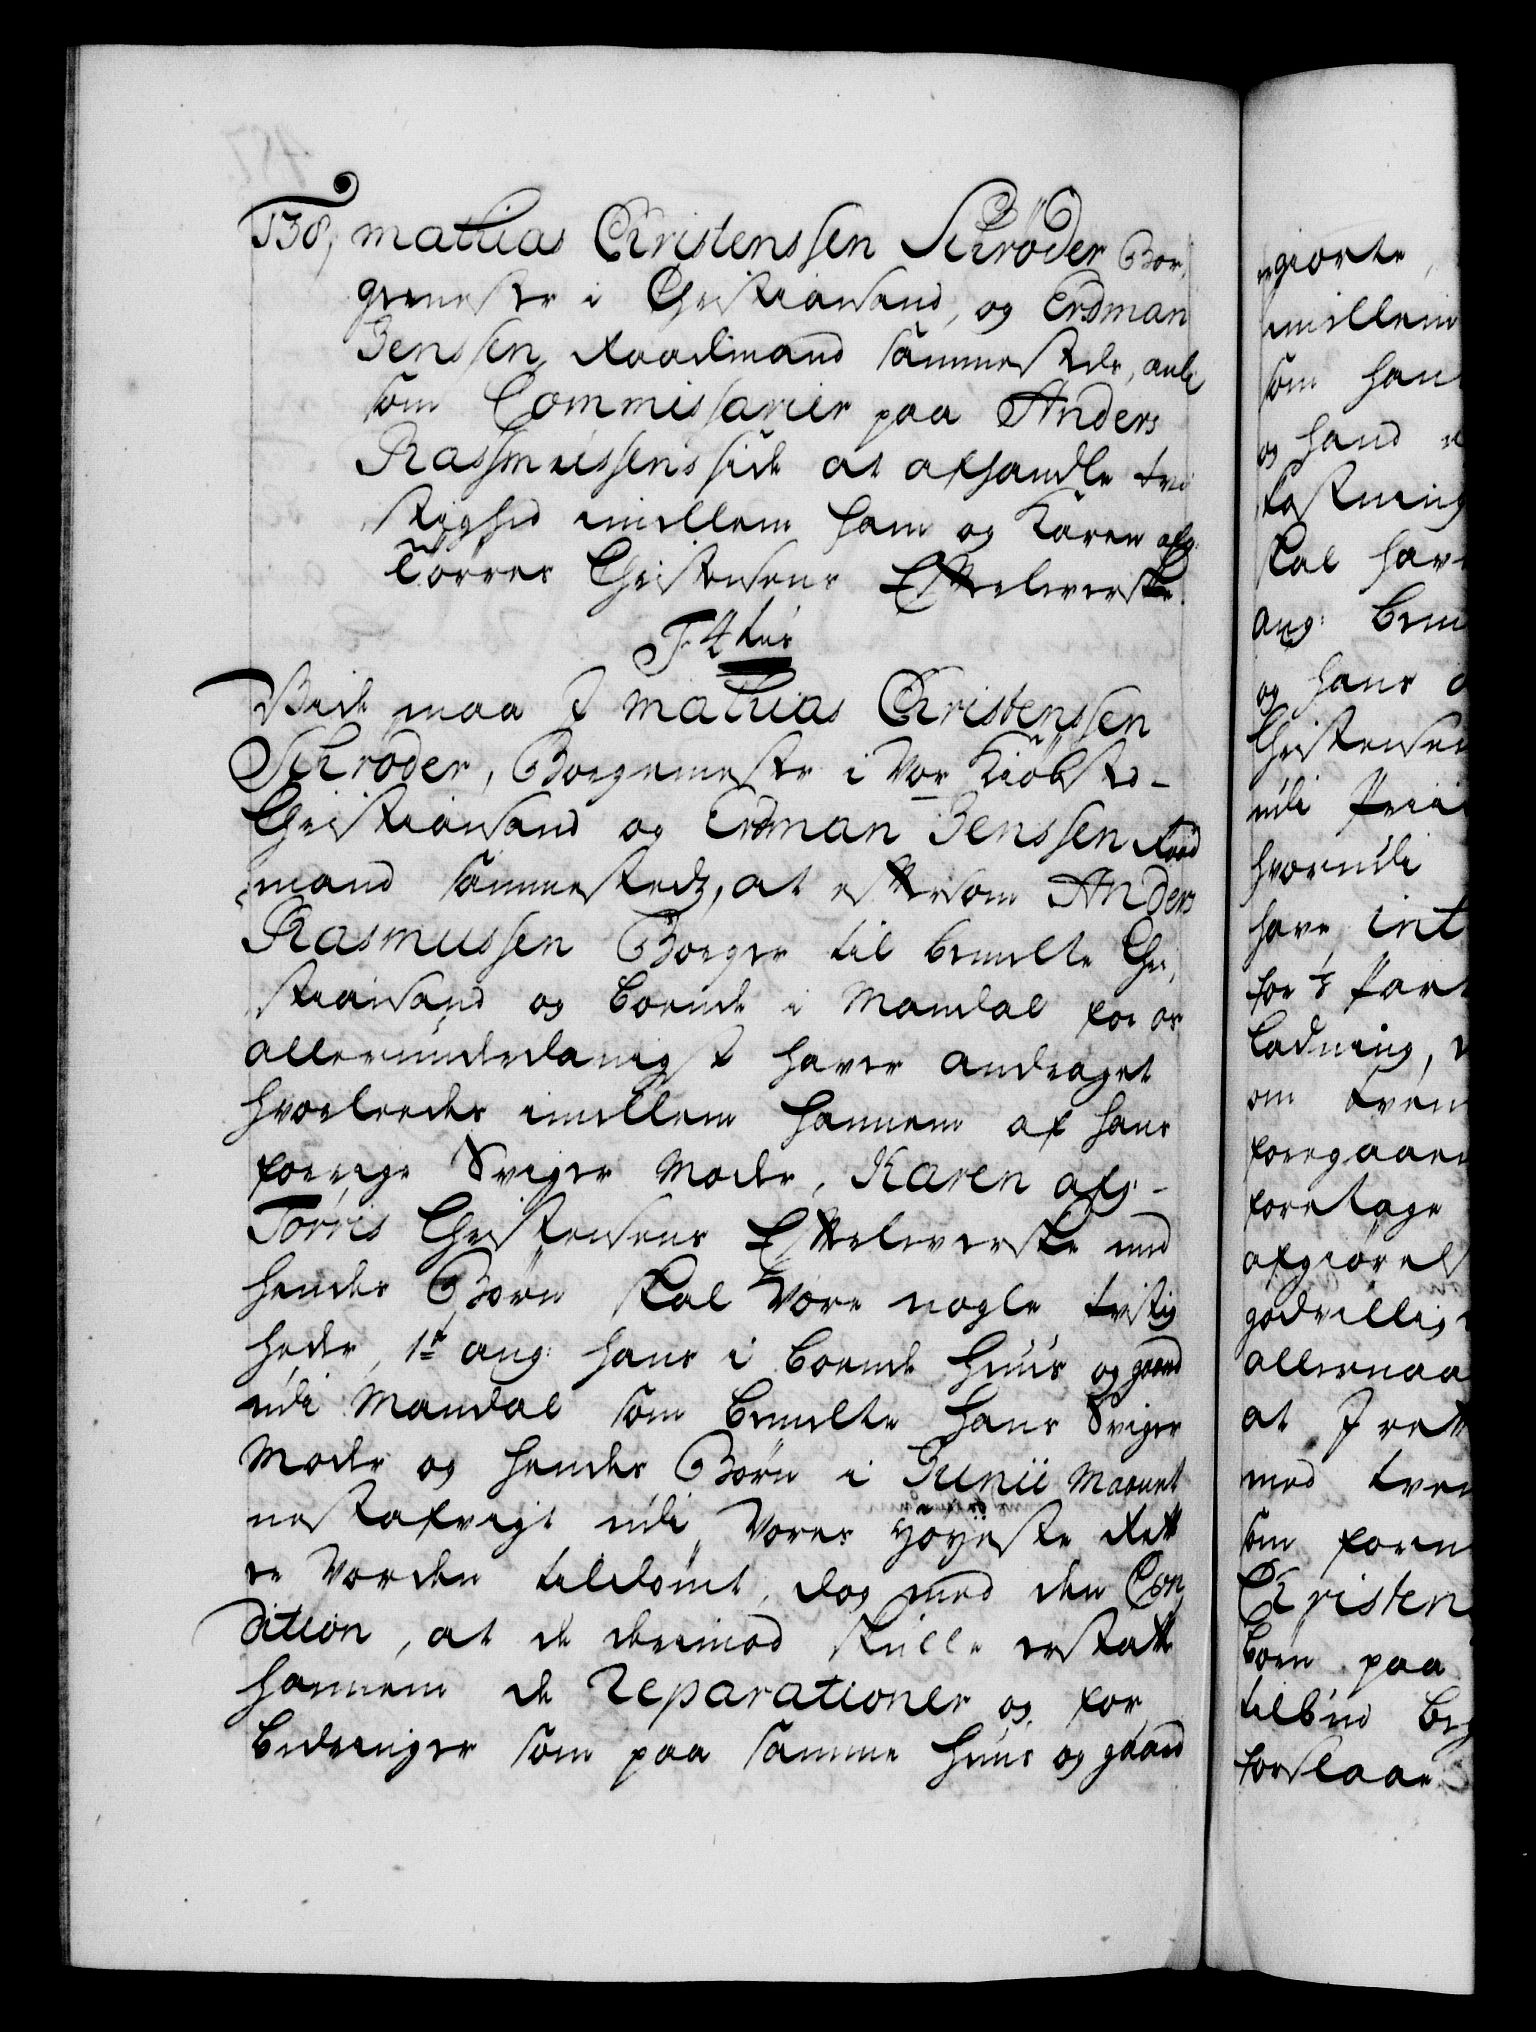 138, Mathias Christenssen Schrøder Bor,
gemester i Christiansand, og Erdman
Jenssen Raadmand sammestedz, anl:
som Commissarier paa Anders
Rasmussens side at afhandle tvi
stighed imellem ham og Karen afg:
Törres Christensens Efterleverske.
F 4 tus
Vide maa I Mathias Christenssen
Schrøder, Borgemester i Vor Kiöbsted
Christiansand og Erdman Jenssen Raad
mand sammestedz, at eftersom Anders
Rasmussen Borger til bemelte Chri,
stiansand og boende i Mandal for os
allerunderdanigst haver andraget
hvorledes imellem hannem af hans
forrige Sviger Moder, Karen afg:
Torris Christensens Efterleverske med
hendes Børn skal være nogle tvistig
heder, 1te ang: hans i boende huus og gaard
udi Mandal som bemelte hans Sviger
Moder og hendes Børn i Junii Maanet
nestafvigt udi Vores Høyeste Rett
er vorden tildömt, dog med den Con
dition, at de derimod skulle erstatte
hannem de Reparationer og for
bedringer som paa samme huus og gaard
giorte,
imellem
som han
og hand
skal hav
ang: bem
og hans
Christensen
udi
hvorudi
have int
for
ladning,
om
foregaaen
foretage
afgiörels
godvillig
allernaa
at I rett
med
som forn
Christen
börn paa
tilbud
forslaae